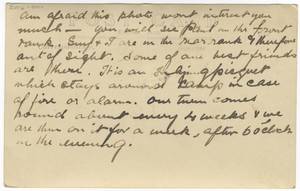 am afraid this photo wont interest you
much — you will see in the front
rank. I are in the rear rank & therefore
out of sight. Some of my best friends
are there. It is an picquet
which stays around camp in case
of fire or alarm. Our turn comes
round about every 4 weeks & we
are then on it for a week, after 6 oclock
in the evening.